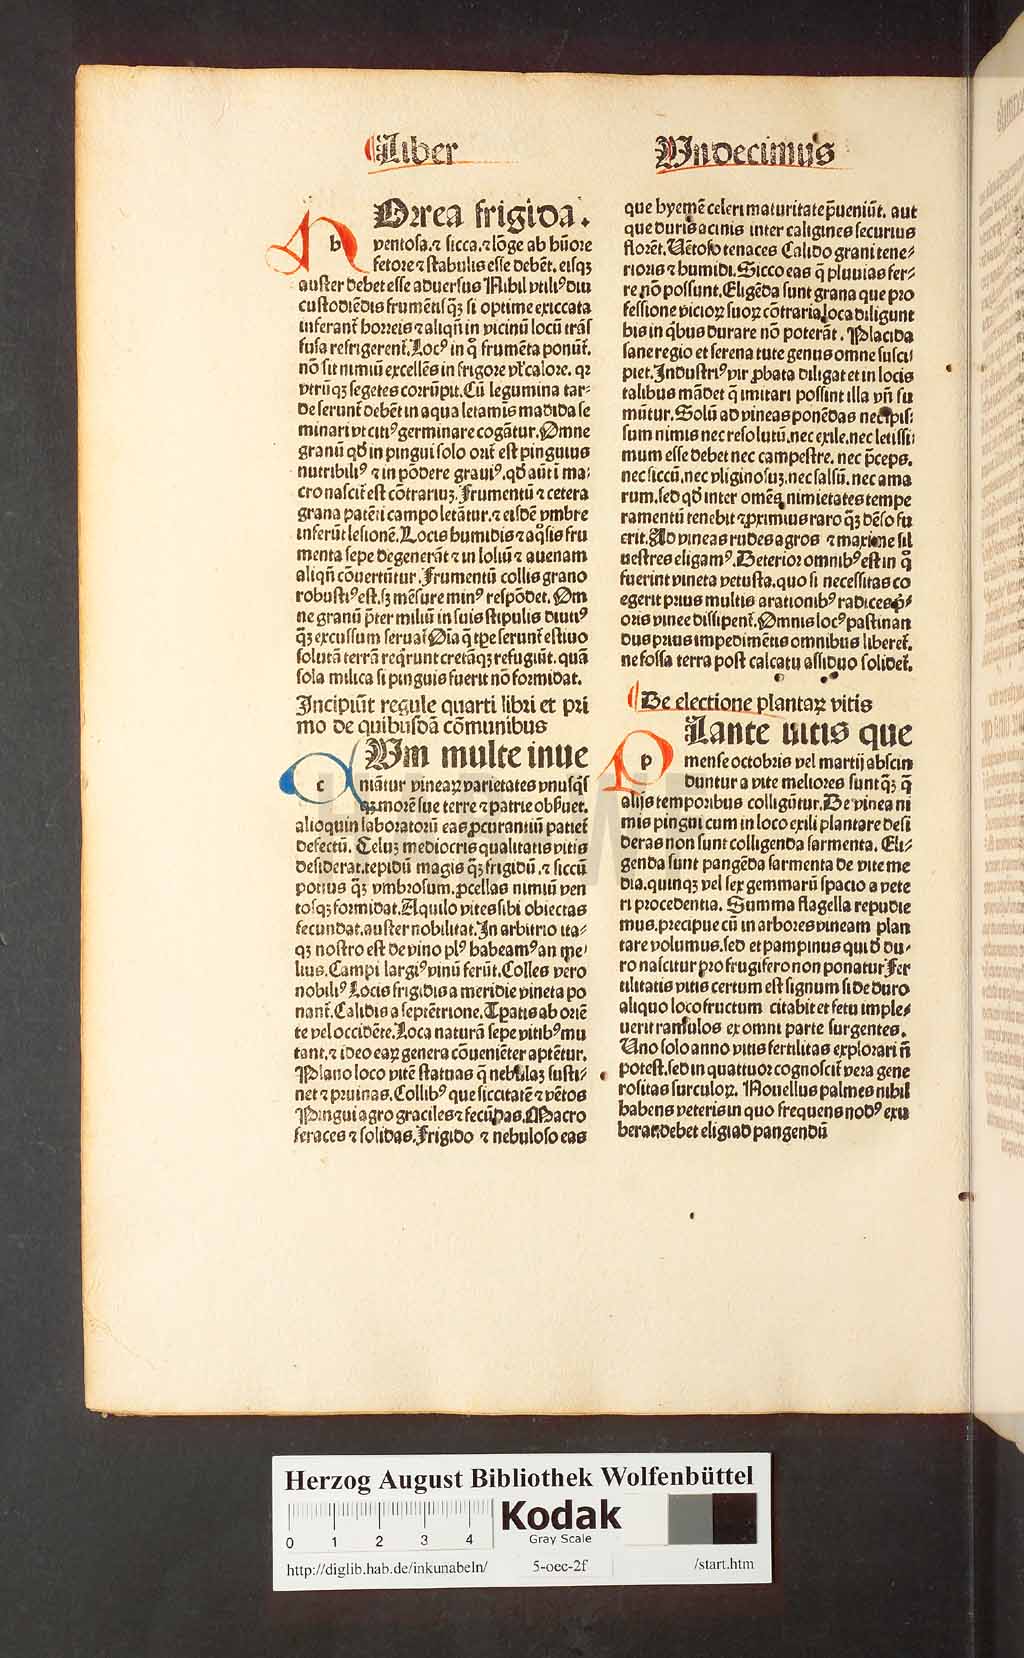 Liber Undecimus
Orrea frigida.
h
ventosa.⁊ sicca.⁊ lõge ab hũore
fetore ⁊ stabulis esse debẽt. eisqꝫ
auster debet esse aduersus Nihil vtiliꝰ diu
custodiẽdis frumẽtis qꝫ si optime exiccata
inferant̃ horreis ⁊ aliqñ in vicinũ locũ trãs
fusa refrigerent̃. Locꝰ in q̊ frumẽta ponũt̃.
nõ sit nimiũ excellẽs in frigore vl̃ calore. qꝛ
vtrũqꝫ segetes corrũpit. Cũ legumina tar⸗
de serunt̃ debẽt in aqua letamĩs madida se
minari vt citiꝰ germinare cogãtur. Omne
granũ qd̓ in pingui solo orit̃ est pinguius
nutribiliꝰ ⁊ in põdere grauiꝰ. qd̓ aũt i ma⸗
cro nascit̃ est cõtrariuꝫ. Frumentũ ⁊ cetera
grana patẽti campo letãtur. ⁊ eisdẽ vmbre
inferũt lesionẽ. Locis humidis ⁊ aq̊sis fru
menta sepe degenerãt ⁊ in loliũ ⁊ auenam
aliqñ cõuertũtur. Frumentũ collis grano
robustiꝰ est. sꝫ mẽsure minꝰ respõdet. Om
ne granũ p̃ter miliũ in suis stipulis diutiꝰ
q̃ꝫ excussum seruat̃ Oĩa q̃ tp̃e serunt̃ estiuo
solutã terrã reqͥrunt cretãqꝫ refugiũt. quã
sola milica si pinguis fuerit nõ formidat.
Incipiũt regule quarti libri et pri
mo de quibusdã cõmunibus
Um multe inue
c
niãtur vinearꝫ varietates vnusqͥs
qꝫ morẽ sue terre ⁊ patrie obẜuet.
alioquin laboratorũ eas ꝓcurantiũ patiet̃
defectũ. Teluꝫ mediocris qualitatis vitis
desiderat. tepidũ magis q̃ꝫ frigidũ. ⁊ siccũ
potius q̃ꝫ vmbrosum. ꝓcellas nimiũ ven
tosqꝫ formidat. Aquilo vites sibi obiectas
fecundat. auster nobilitat. In arbitrio ita⸗
qꝫ nostro est de vino plꝰ habeamꝰ an me⸗
lius. Campi largiꝰ vinũ ferũt. Colles vero
nobiliꝰ Locis frigidis a meridie vineta po
nant̃. Calidis a septẽtrione. Tp̃atis ab oriẽ
te vel occidẽte. Loca naturã sepe vitibꝰ mu
tant. ⁊ ideo earꝫ genera cõueniẽter aptẽtur.
Plano loco vitẽ statuas q̃ nebulaꝫ susti⸗
net ⁊ pruinas. Collibꝰ que siccitatẽ ⁊ vẽtos
Pingui agro graciles ⁊ fecũdas. Macro
feraces ⁊ solidas. Frigido ⁊ nebuloso eas
que hyemẽ celeri maturitate p̃ueniũt. aut
que duris acinis inter caligines securius
florẽt. Uẽtoso tenaces Calido grani tene⸗
rioris ⁊ humidi. Sicco eas q̃ pluuias fer⸗
re nõ possunt. Eligẽda sunt grana que pro
fessione vicioꝝ suoꝝ cõtraria loca diligunt
his in qͥbus durare nõ poterãt. Placida
sane regio et serena tute genus omne susci
piet. Industriꝰ vir ꝓbata diligat et in locis
talibus mãdet q̃ imitari possint illa vñ su
mũtur. Solũ ad vineas ponẽdas nec spis⸗
sum nimis nec resolutũ. nec exile. nec letissi
mum esse debet nec campestre. nec p̃ceps.
nec siccũ. nec vliginosuꝫ. nec salsũ. nec ama
rum. sed qd̓ inter omẽs nimietates tempe
ramentũ tenebit ⁊ ꝓximius raro q̃ꝫ dẽso fu
erit. Ad vineas rudes agros ⁊ maxime sil
uestres eligamꝰ. Deterior omnibꝰ est in q̊
fuerint vineta vetusta. quo si necessitas co
egerit prius multis arationibꝰ radices p̃⸗
oris vinee dissipent̃. Omnis locꝰ pastinan
dus prius impedimẽtis omnibus liberet̃.
ne fossa terra post calcatu assiduo solidet̃.
De electione plantaꝝ vitis
Lante uitis que
p
mense octobris vel martij abscin
duntur a vite meliores sunt qꝫ q̃
alijs temporibus colligũtur. De vinea ni
mis pingui cum in loco exili plantare desi
deras non sunt colligenda sarmenta. Eli⸗
genda sunt pangẽda sarmenta de vite me
dia. quinqꝫ vel sex gemmarũ spacio a vete
ri procedentia. Summa flagella repudie
mus. precipue cũ in arbores vineam plan
tare volumus. sed et pampinus qui d̓ du⸗
ro nascitur pro frugifero non ponatur Fer
tilitatis vitis certum est signum si de duro
aliquo loco fructum citabit et fetu imple⸗
uerit ramulos ex omni parte surgentes.
Uno solo anno vitis fertilitas explorari ñ
potest. sed in quattuor cognoscit̃ vera gene
rositas surculoꝝ. Nouellus palmes nihil
habens veteris in quo frequens nodꝰ exu
berat debet eligi ad pangendũ
HAB WF
Herzog August Bibliothek Wolfenbüttel
0 1 2 3 4
Kodak
Gray Scale
http://diglib.hab.de/inkunabeln/ 5-oec-2f /start.htm